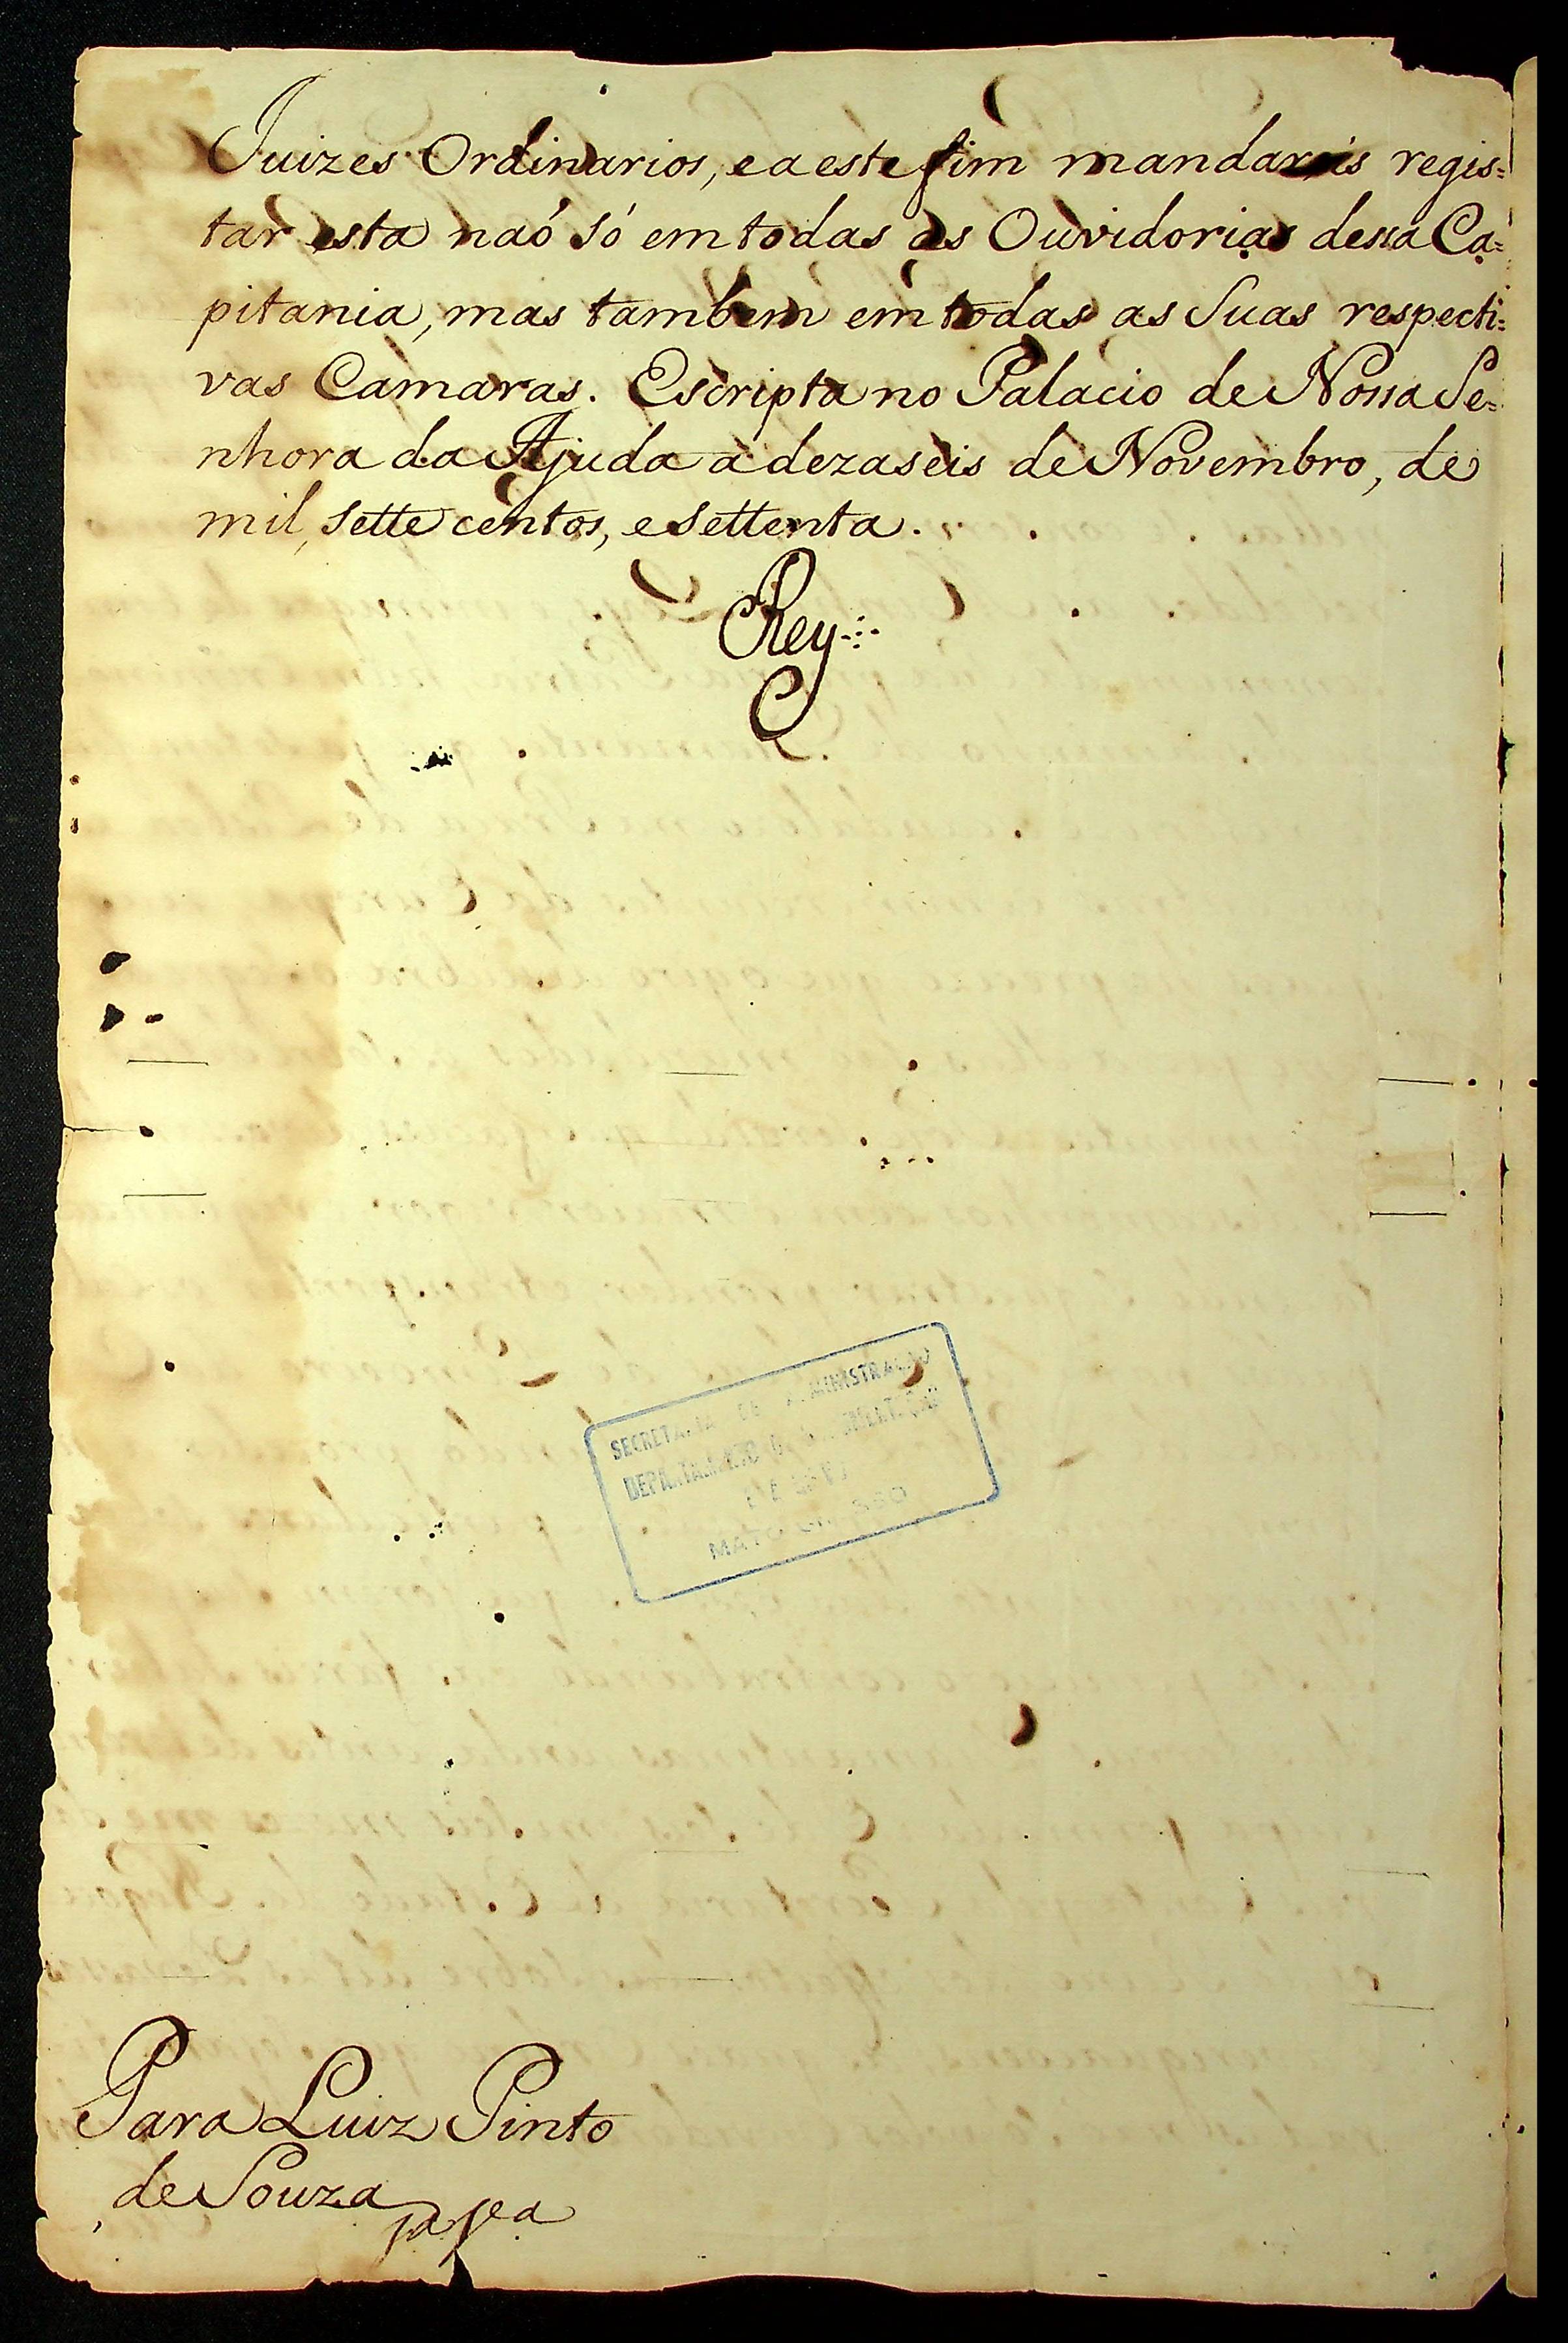 Juizes Ordinarios, e a este fim mandareis regis=
tar esta naõ só em todas as Ouvidorias dessa Ca=
pitania, mas tambem em todas as Suas respecti=
vas Camaras. Escripta no Palacio de Nossa Se=
nhora da Ajuda a dezaseis de Novembro, de
mil, sette centos, e settenta.
Rey
SECRETARIA DE ADMINISTRAÇÃO
DEPARTAMENTO DE DOCUMENTAÇÃO
MATO GROSSO
Para Luiz Pinto
de Souza